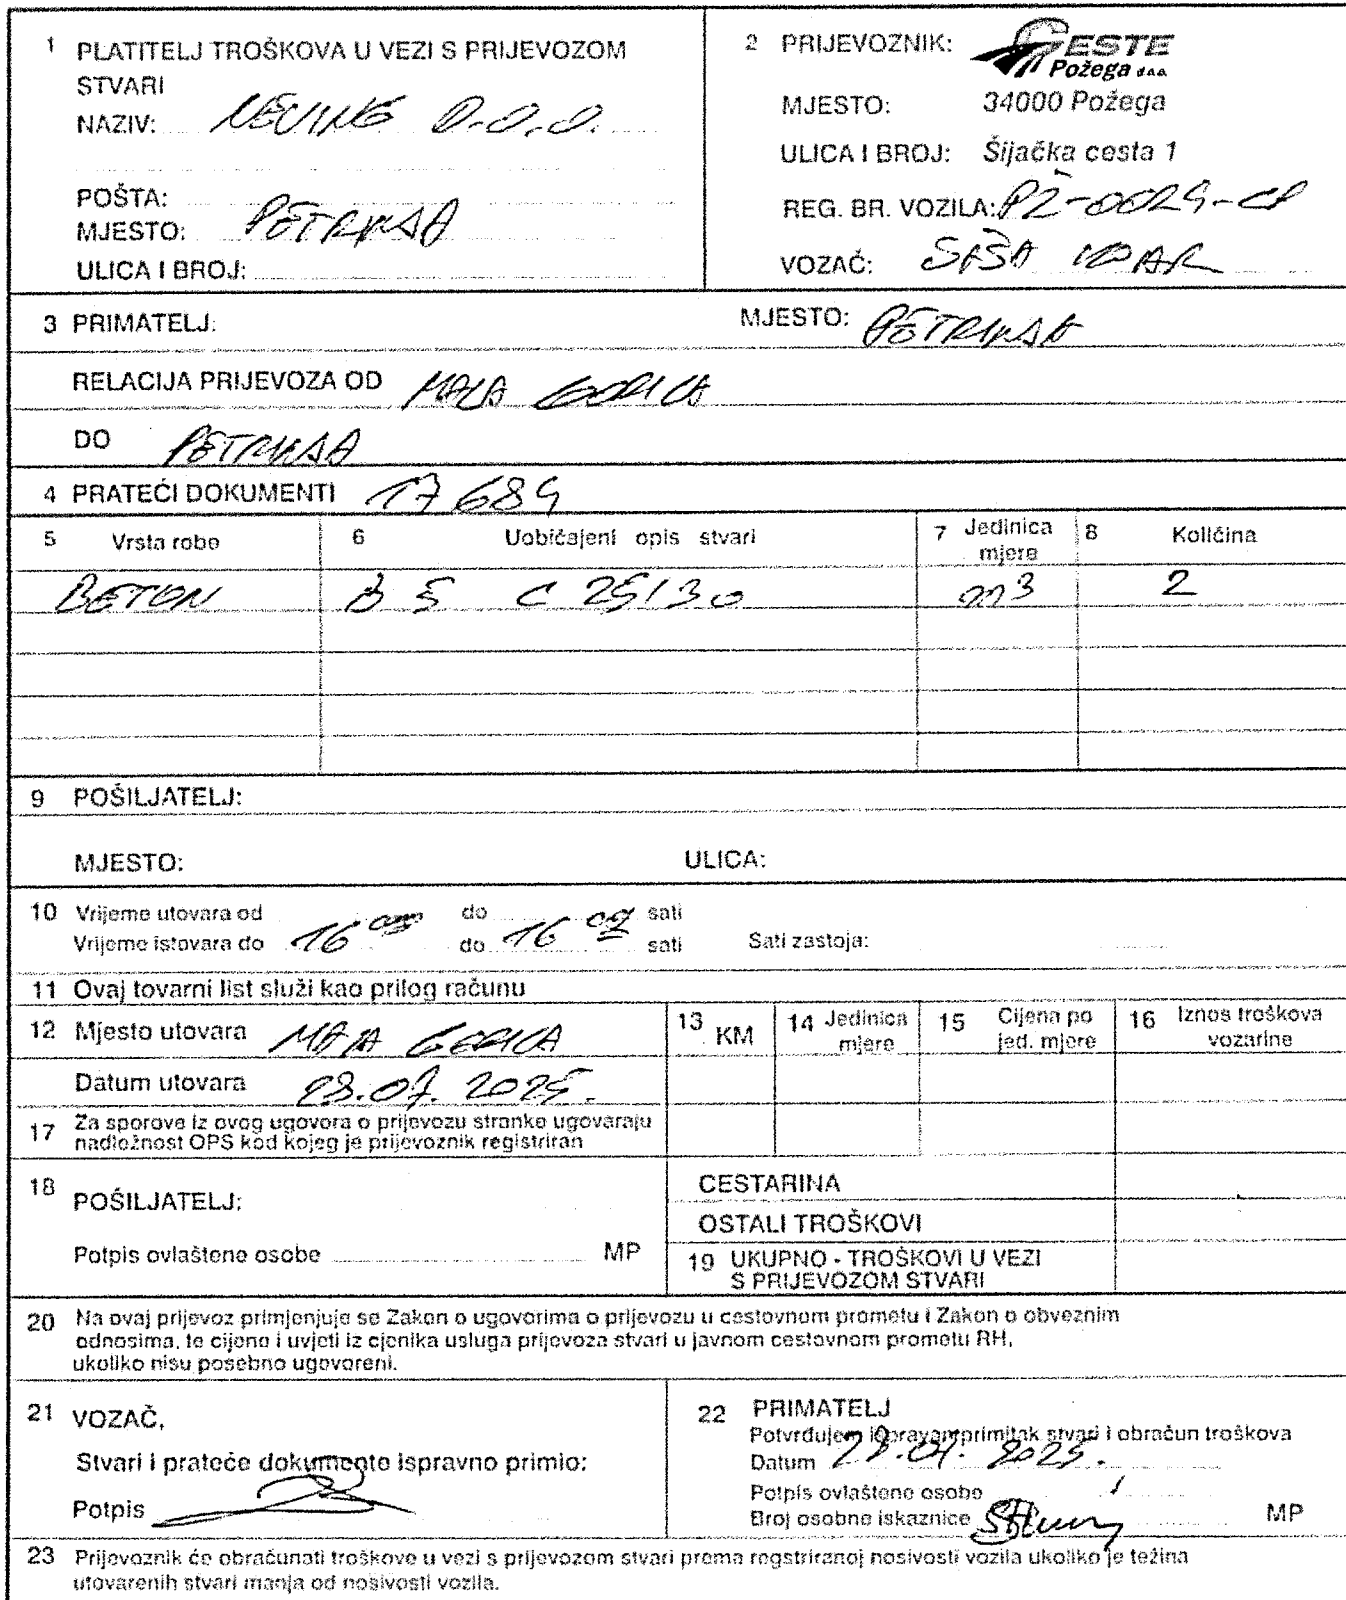 1 PLATITELJ TROŠKOVA U VEZI S PRIJEVOZOM
STVARI
NAZIV: NEVING D.O.O.
POŠTA:
MJESTO: PETRINJA
ULICA I BROJ:
2 PRIJEVOZNIK: CESTE
Požega d.o.o.
MJESTO: 34000 Požega
ULICA I BROJ: Šijačka cesta 1
REG. BR. VOZILA: PŽ-0029-CP
VOZAČ: SAŠA
3 PRIMATELJ: MJESTO: PETRINJA
RELACIJA PRIJEVOZA OD MALA GORICA
DO PETRINJA
4 PRATEĆI DOKUMENTI 17689
5 Vrsta robe 6 Uobičajeni opis stvari 7 Jedinica mjere 8 Količina
BETON C 25/30 m3 2
9 POŠILJATELJ:
MJESTO: ULICA:
10 Vrijeme utovara od do sati
Vrijeme istovara do 16 do 16 07 sati Sati zastoja:
11 Ovaj tovarni list služi kao prilog računu
12 Mjesto utovara MALA GORICA
Datum utovara 28.07. 2025.
13 KM 14 Jedinica mjere 15 Cijena po jed. mjere 16 Iznos troškova vozarine
17 Za sporove iz ovog ugovora o prijevozu stranke ugovaraju
nadležnost OPS kod kojeg je prijevoznik registriran
18 POŠILJATELJ:
Potpis ovlaštene osobe MP
CESTARINA
OSTALI TROŠKOVI
19 UKUPNO - TROŠKOVI U VEZI
S PRIJEVOZOM STVARI
20 Na ovaj prijevoz primjenjuje se Zakon o ugovorima o prijevozu u cestovnom prometu i Zakon o obveznim
odnosima, te cijene i uvjeti iz cjenika usluga prijevoza stvari u javnom cestovnom prometu RH,
ukoliko nisu posebno ugovoreni.
21 VOZAČ,
Stvari i prateće dokumente ispravno primio:
Potpis
22 PRIMATELJ
Potvrđujem ispravan primitak stvari i obračun troškova
Datum 28.07. 2025.
Potpis ovlaštene osobe
Broj osobne iskaznice MP
23 Prijevoznik će obračunati troškove u vezi s prijevozom stvari prema regstriranoj nosivosti vozila ukoliko je težina
utovarenih stvari manja od nosivosti vozila.